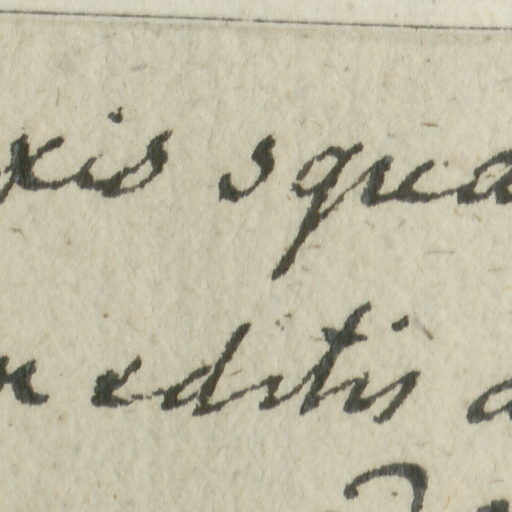 xis squa
editis